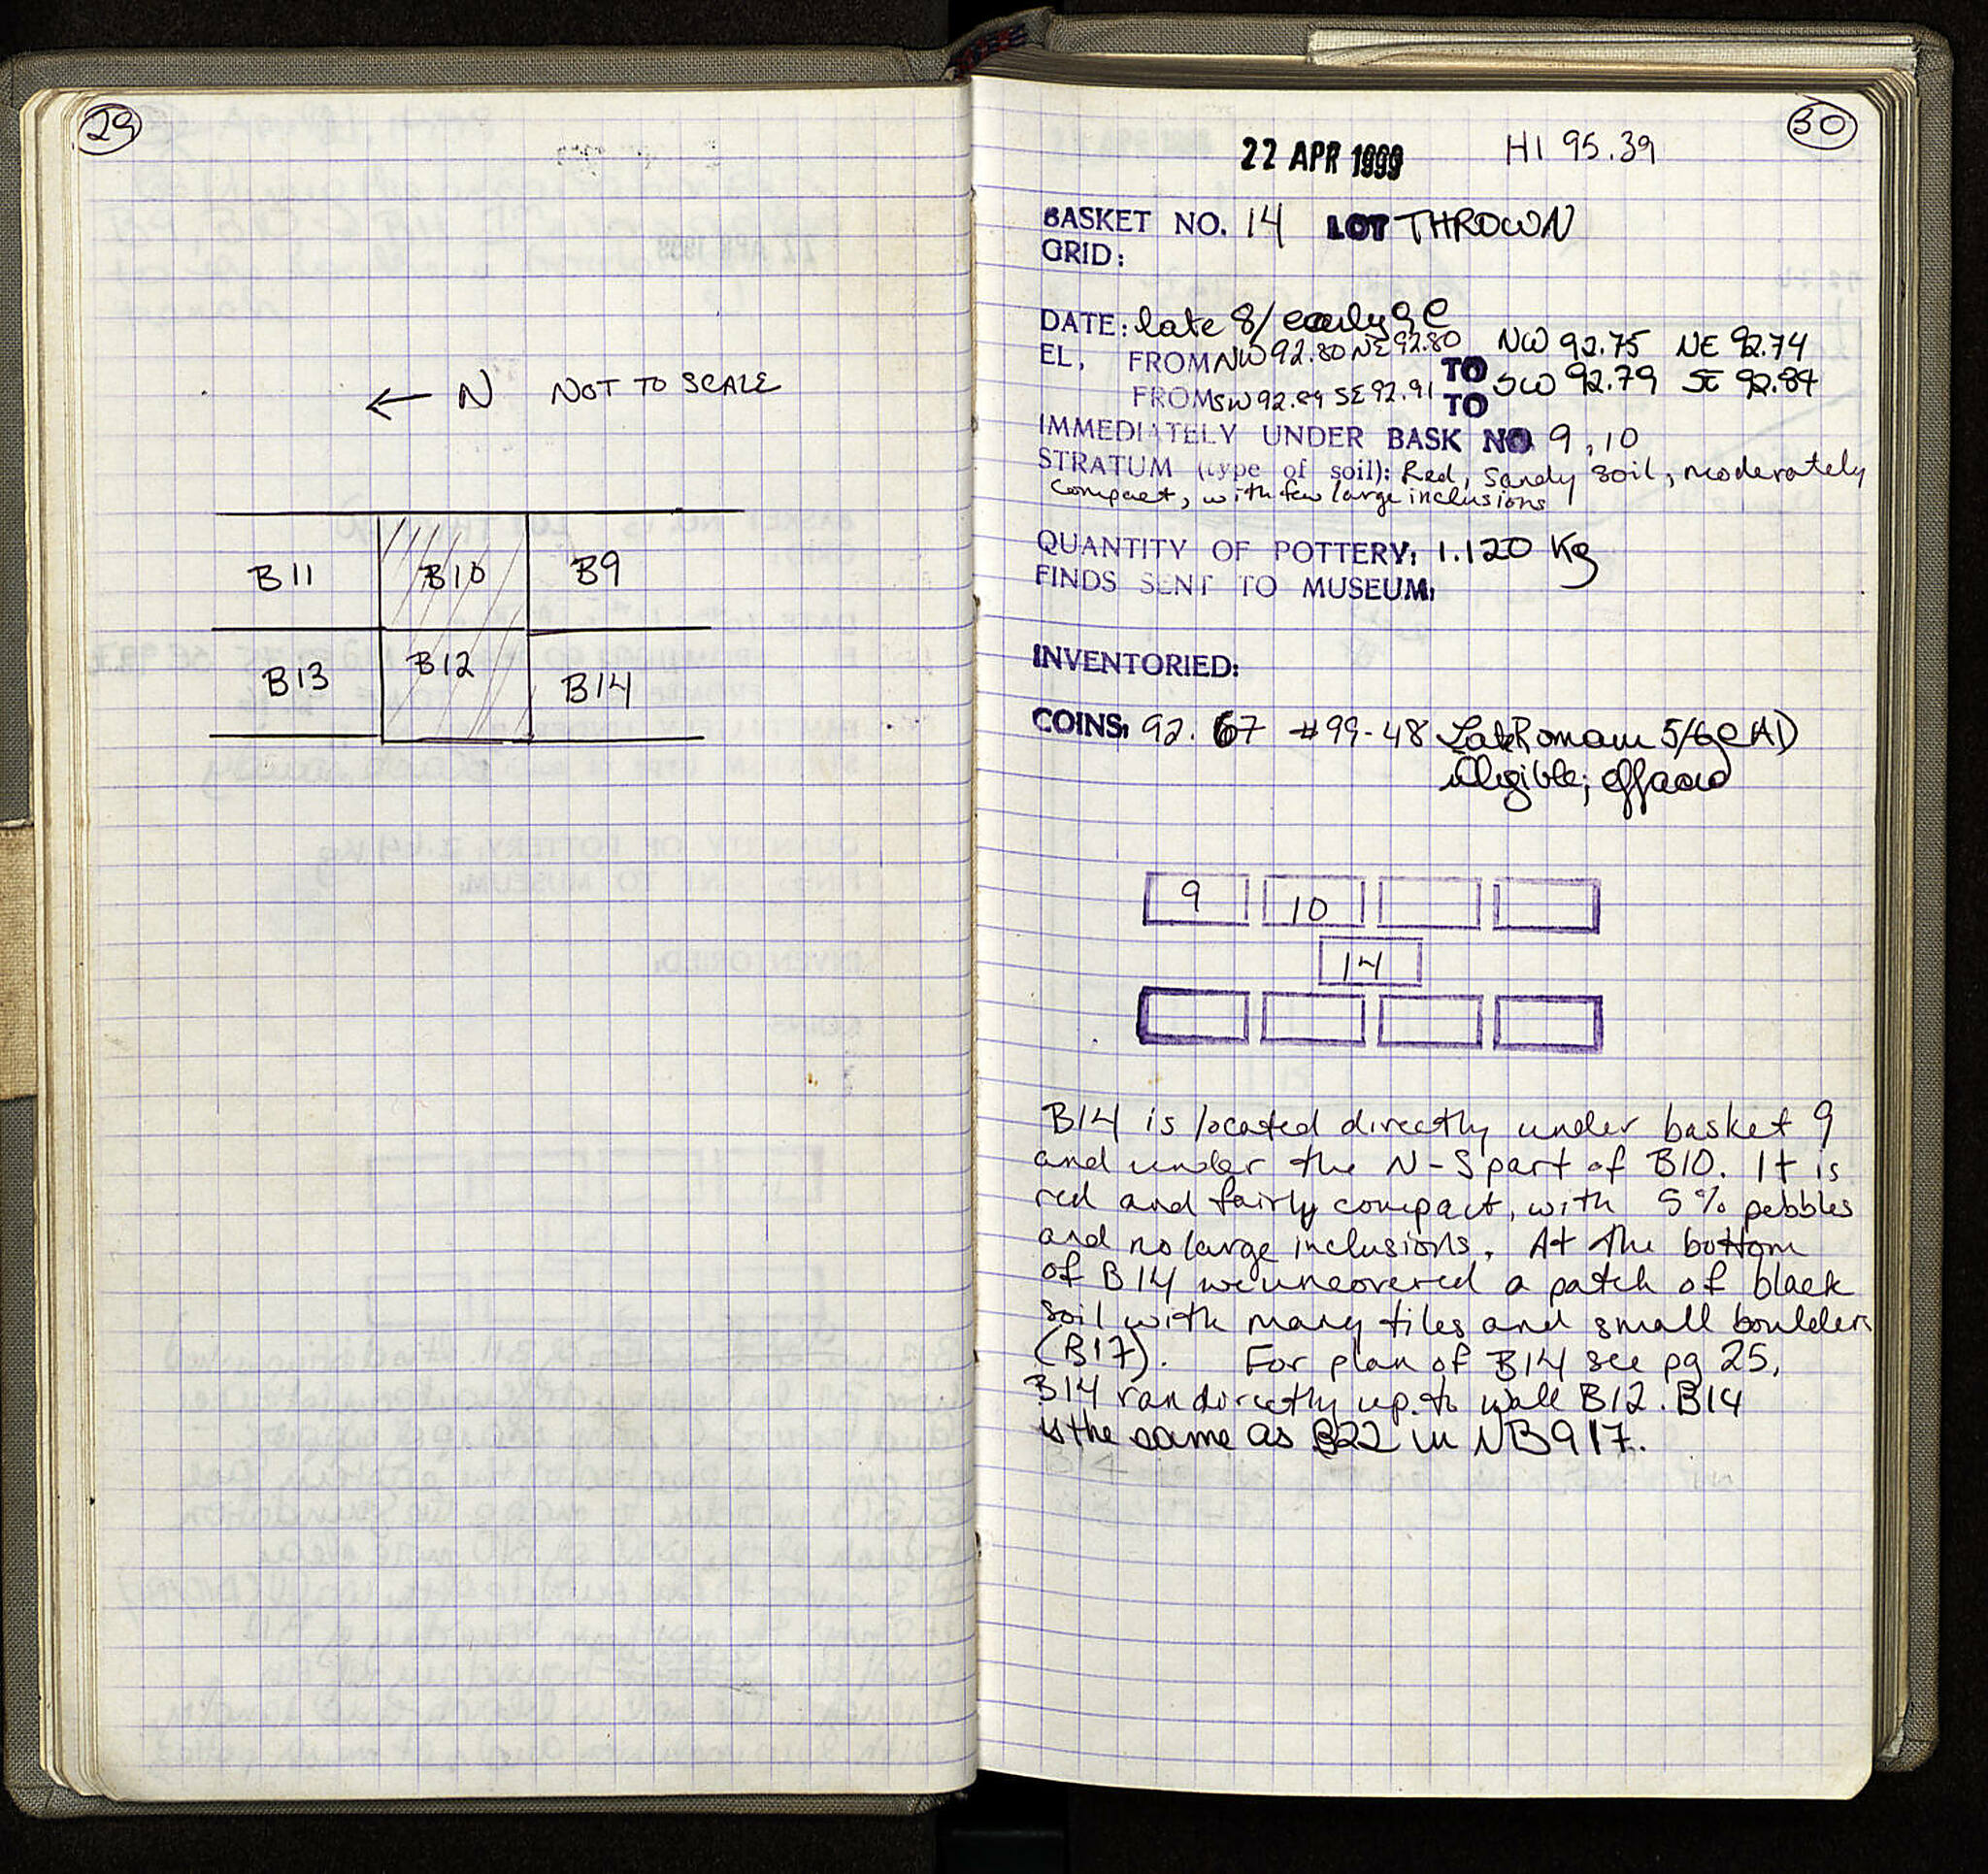 29
← N NOT TO SCALE
B11 B10 B9
B13 B12 B14
30
22 APR 1999 HI 95.39
BASKET NO. 14 LOT THROWN
GRID:
DATE: late 8/early 9 C
EL, FROM NW 92.80 NE 92.80 TO NW 92.75 NE 92.74
FROM SW 92.89 SE 92.91 TO SW 92.79 SE 92.84
IMMEDIATELY UNDER BASK NO 9, 10
STRATUM (type of soil): Red, Sandy soil, moderately
compact, with few large inclusions
QUANTITY OF POTTERY: 1.120 Kg
FINDS SENT TO MUSEUM:
INVENTORIED:
COINS: 92.67 #99-48 Late Roman 5/6 C AD
illegible; effaced
9 10
14
B14 is located directly under basket 9
and under the N-S part of B10. It is
red and fairly compact, with 5% pebbles
and no large inclusions. At the bottom
of B14 we uncovered a patch of black
soil with many tiles and small boulders
(B17). For plan of B14 see pg 25,
B14 ran directly up to wall B12. B14
is the same as B22 in NB917.